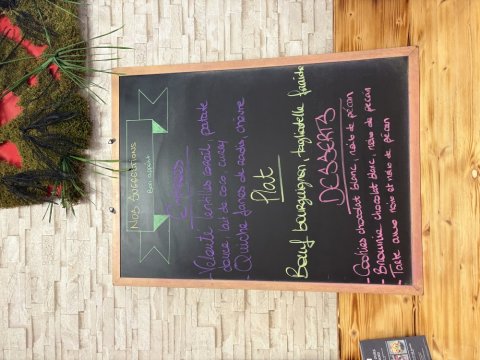 NOS SUGGESTIONS
Bon appétit
Entrées
- Velouté lentilles corail, patate
douce, lait de coco, curry
- Quiche fanes de radis, chèvre
Plat
Bœuf bourguignon, tagliatelle fraîche
DESSERTS
- Cookies chocolat blanc, noix de pécan
- Brownie chocolat blanc, noix de pecan
- Tarte aux noix et noix de pécan